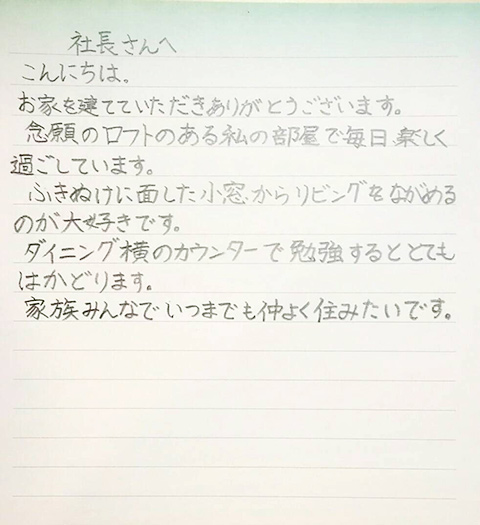 社長さんへ
こんにちは。
お家を建てていただきありがとうございます。
念願のロフトのある私の部屋で毎日、楽しく
過ごしています。
ふきぬけに面した小窓からリビングをながめる
のが大好きです。
ダイニング横のカウンターで勉強するととても
はかどります。
家族みんなでいつまでも仲よく住みたいです。